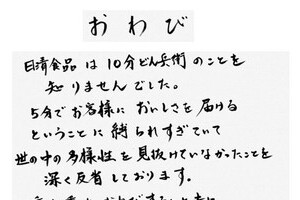 おわび
日清食品は10分どん兵衛のことを
知りませんでした。
5分でお客様においしさを届ける
ということに縛られすぎていて
世の中の多様性を見抜けていなかったことを
深く反省しております。